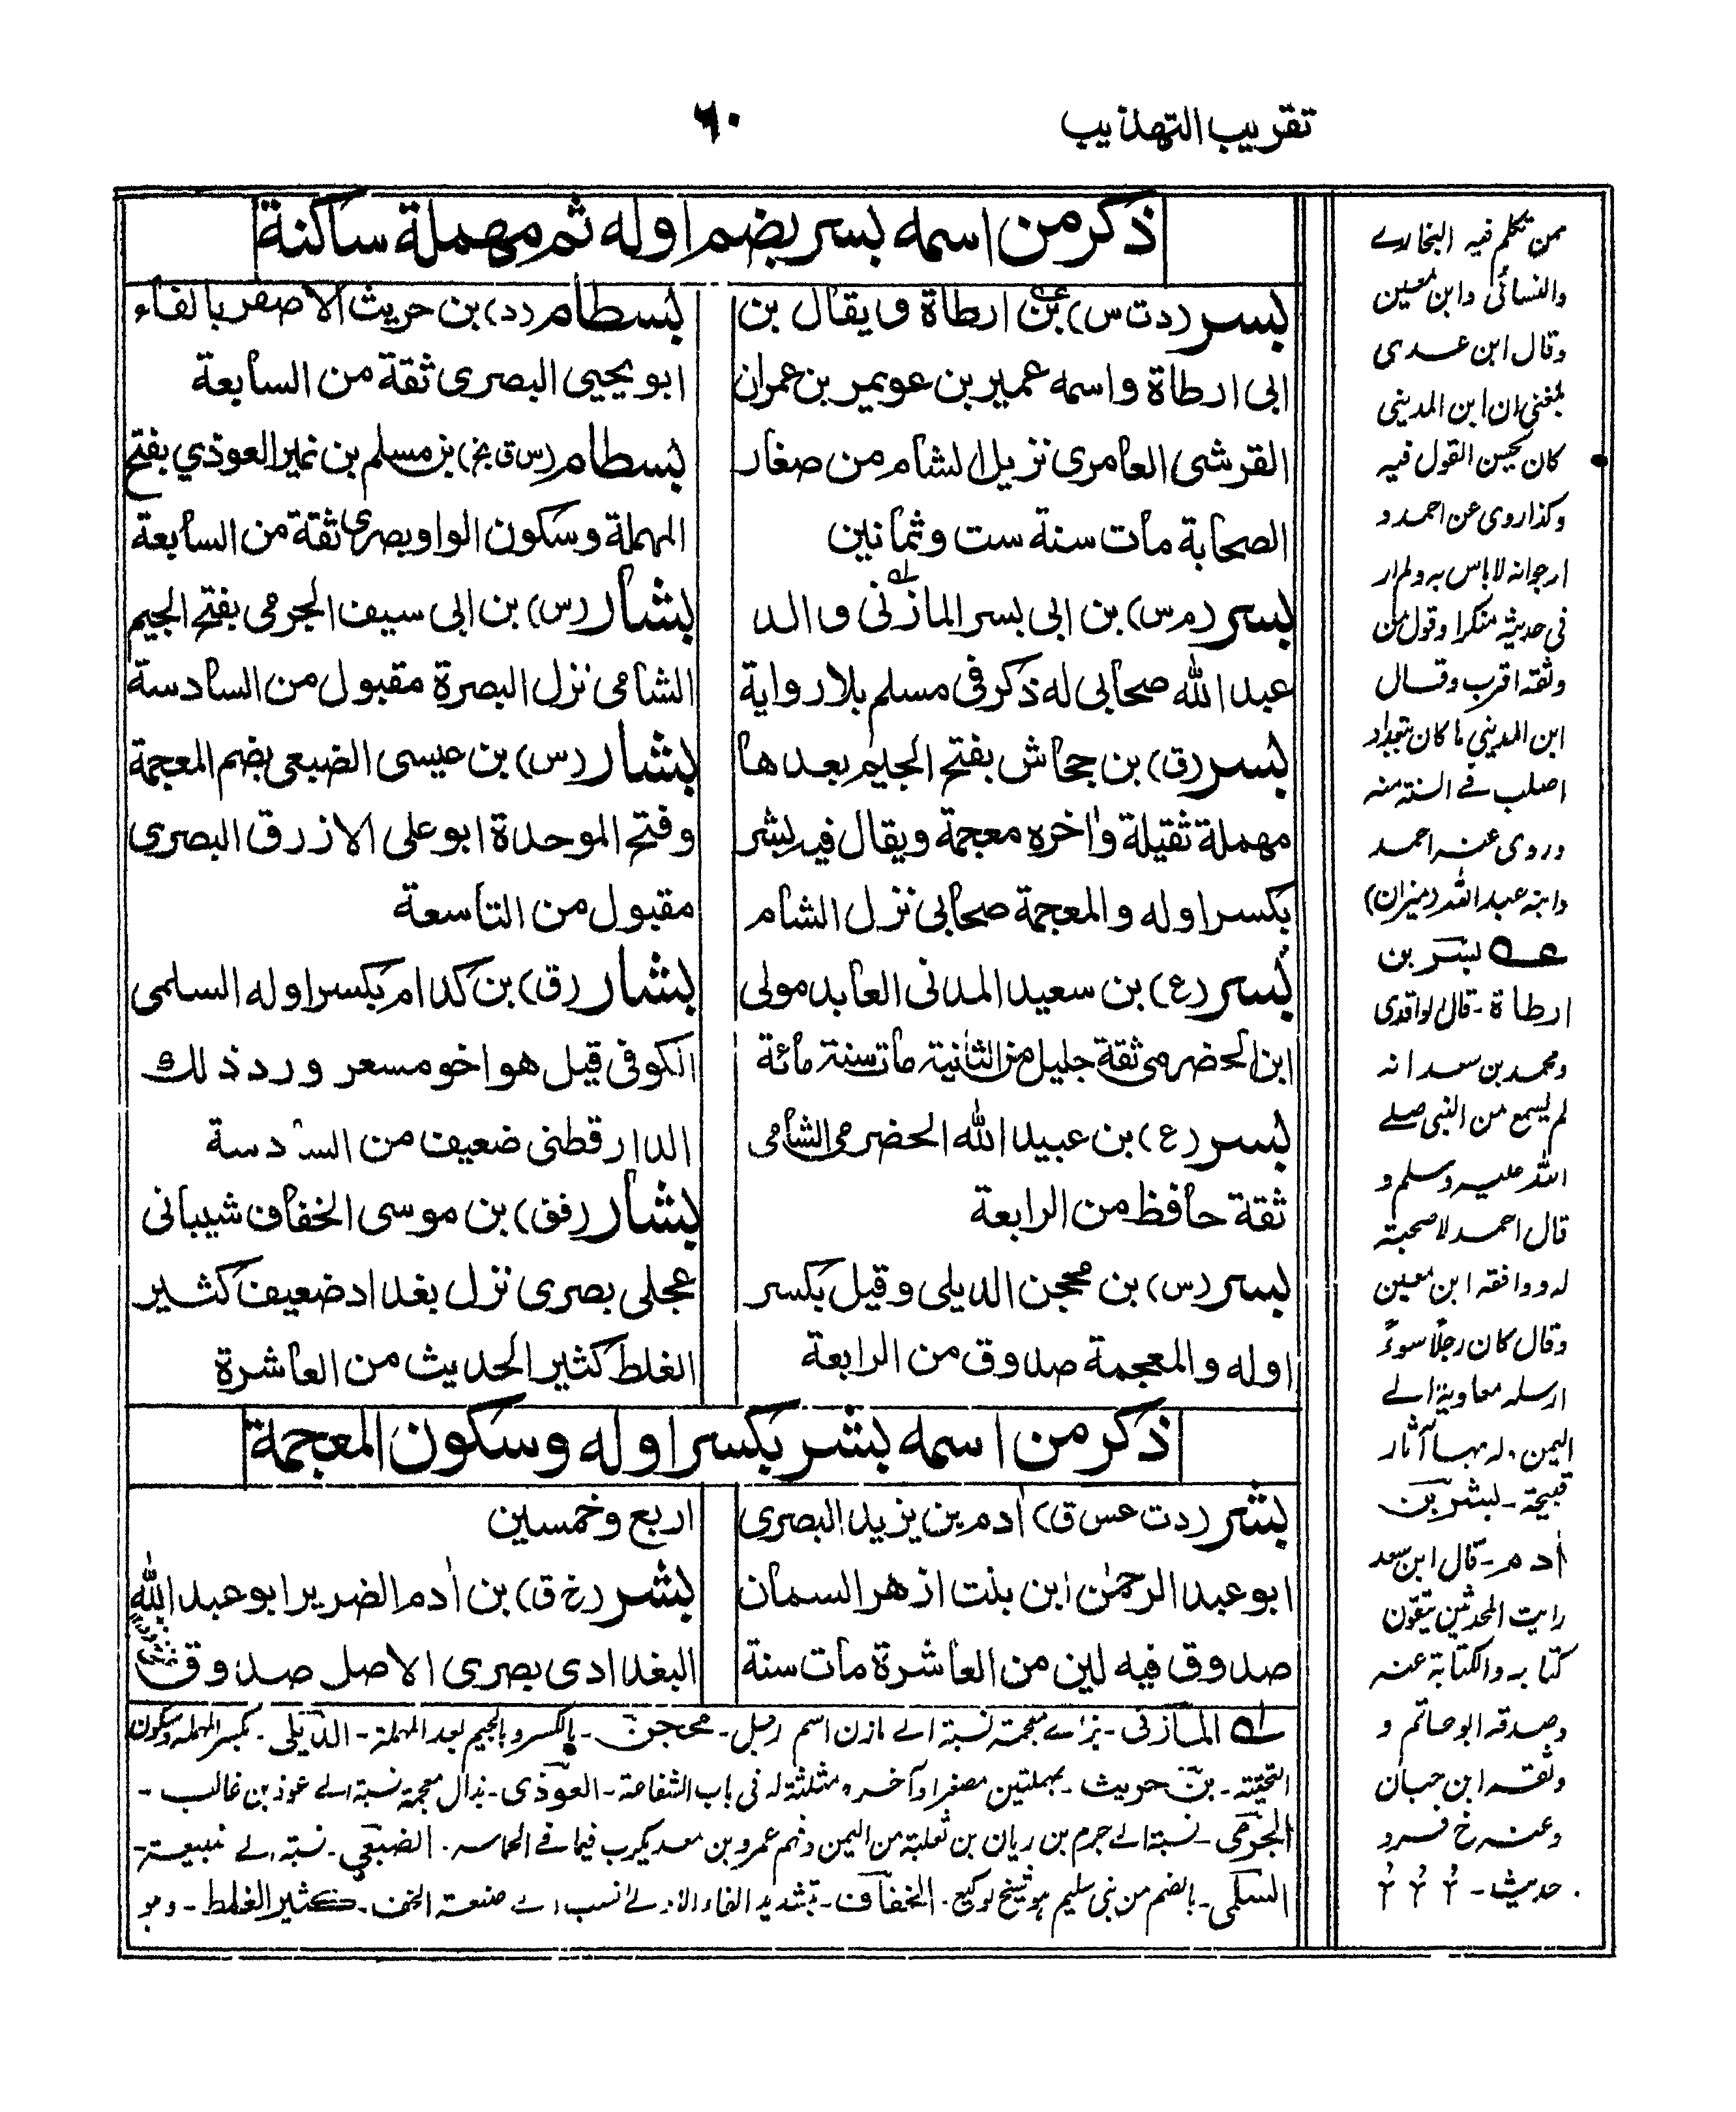 تقريب التهذيب
٦٠
ذكر من اسمه بسر بضم اوله ثم مهملة ساكنة
بسر (د ت س) بن ارطاة ويقال بن
ابى ارطاة واسمه عمير بن عويمر بن عمران
القرشى العامرى نزيل الشام من صغار
الصحابة مات سنة ست وثمانين
بسر (م س) بن ابى بسر المازنى والد
عبد الله صحابى له ذكر فى مسلم بلا رواية
بسر (ق) بن جحاش بفتح الجيم بعدها
مهملة ثقيلة واخره معجمة ويقال فيه بشر
بكسر اوله والمعجمة صحابى نزل الشام
بسر (ع) بن سعيد المدنى العابد مولى
ابن الحضرمى ثقة جليل من الثانية مات سنة مائة
بسر (ع) بن عبيد الله الحضرمى الشامى
ثقة حافظ من الرابعة
بسر (س) بن محجن الديلى وقيل بكسر
اوله والمعجمة صدوق من الرابعة
بسطام (د) بن حريث الاصفر بالفاء
ابو يحيى البصرى ثقة من السابعة
بسطام (س ق بخ) بن مسلم بن نمير العوذي بفتح
المهملة وسكون الواو بصرى ثقة من السابعة
بشار (س) بن ابى سيف الجرمى بفتح الجيم
الشامى نزل البصرة مقبول من السادسة
بشار (س) بن عيسى الضبعى بضم المعجمة
وفتح الموحدة ابو على الازرق البصرى
مقبول من التاسعة
بشار (ق) بن كدام بكسر اوله السلمى
الكوفى قيل هو اخو مسعر ورد ذلك
الدارقطنى ضعيف من السادسة
بشار (فق) بن موسى الخفاف شيبانى
عجلى بصرى نزل بغداد ضعيف كثير
الغلط كثير الحديث من العاشرة
ذكر من اسمه بشر بكسر اوله وسكون المعجمة
بشر (د ت عس ق) ادم بن يزيد البصرى
ابو عبد الرحمن ابن بنت ازهر السمان
صدوق فيه لين من العاشرة مات سنة
اربع وخمسين
بشر (خ ق) بن ادم الضرير ابو عبد الله
البغدادى بصرى الاصل صدوق
المازنى - بزاے معجمة نسبة الے مازن اسم رجل - محجن - بالكسر وبالجيم بعد المهملة - الديلى - بكسر المهملة وسكون
التحتية - بن حريث - بمهملتين مصغرا وآخره مثلثة له فى باب الشفاعة - العوذى - بذال معجمة نسبة الے عوذ بن غالب -
الجرمى - نسبة الے جرم بن ريان بن ثعلبة من اليمن ومنهم عمرو بن معد يكرب فيما فے الحماسه . الضبعى - نسبة الے ضبيعة -
السلمى - بالضم من بنى سليم هو شيخ لوكيع . الخفاف - بتشديد الفاء الاولے نسب الے صنعة الخف - كثير الغلط - وهو
ممن تكلم فيه البخارے
والنسائى وابن معين
وقال ابن عدى
بلغنى ان ابن المدينى
كان يحسن القول فيه
وكذا روى عن احمد و
ارجو انه لا باس به ولم ار
فى حديثه منكرا وقول من
وثقه اقرب وقال
ابن المدينى ما كان ببغداد
اصلب فے السنة منه
وروى عنه احمد
وابنه عبد الله (ميزان)
عه بسر بن
ارطاة - قال الواقدى
ومحمد بن سعد انه
لم يسمع من النبى صلے
الله عليه وسلم و
قال احمد لا صحبة
له ووافقه ابن معين
وقال كان رجلا سوءً
ارسله معاوية الے
اليمن . له بها آثار
قبيحة - بشر بن
أدم - قال ابن سعد
رايت المحدثين يتقون
كتابه والكتابة عنه
وصدقه ابو حاتم و
وثقه ابن حبان
وعنه خ فرد
حديث -